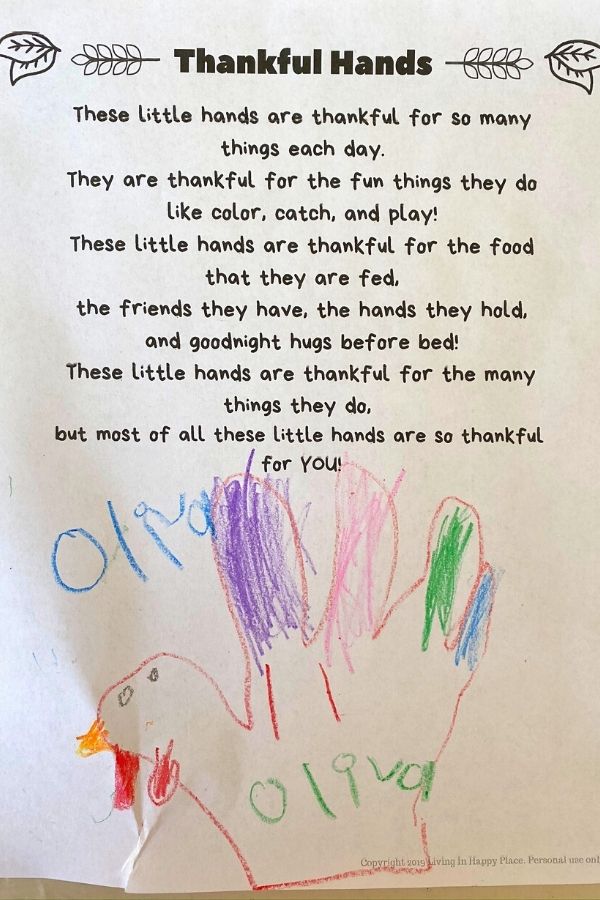 Thankful Hands
These little hands are thankful for so many
things each day.
They are thankful for the fun things they do
like color, catch, and play!
These little hands are thankful for the food
that they are fed,
the friends they have, the hands they hold,
and goodnight hugs before bed!
These little hands are thankful for the many
things they do,
but most of all these little hands are so thankful
for YOU!
Oliva
Oliva
Copyright 2019 Living In Happy Place. Personal use onl